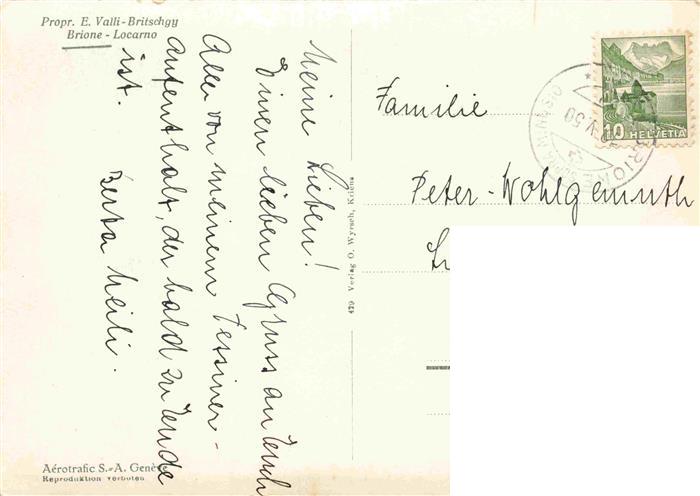 Propr. E. Valli-Britschgy
Brione - Locarno
Meine Lieben!
Einen lieben Gruss an Euch
Alle von meinem Tessiner-
aufenthalt, der bald zu Ende
ist.
Berta Meili.
429 Verlag O. Wyrsch, Kriens
Aérotrafic S.-A. Genève
Reproduktion verboten
Familie
Peter-Wohlgemuth
10 HELVETIA
BRIONE
V.50